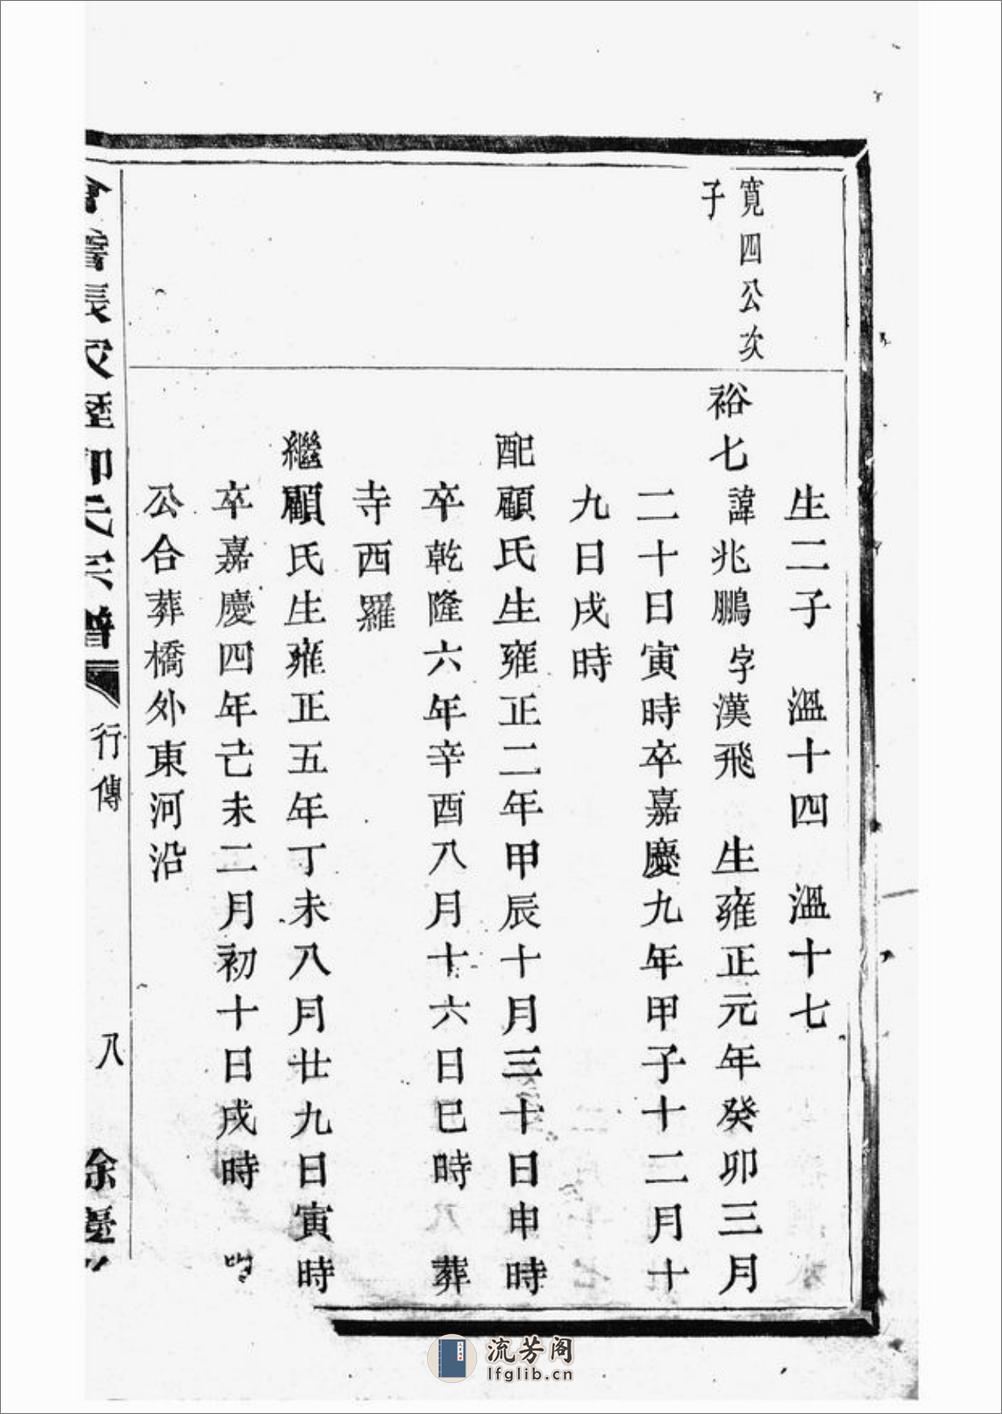 寛四公次
子
生二子　溫十四　溫十七
裕七諱兆鵬字漢飛　生雍正元年癸卯三月
二十日寅時卒嘉慶九年甲子十二月十
九日戌時
配顧氏生雍正二年甲辰十月三十日申時
卒乾隆六年辛酉八月十六日巳時　葬
寺西羅
繼顧氏生雍正五年丁未八月廿九日寅時
卒嘉慶四年己未二月初十日戌時
公合葬橋外東河沿
會稽長
氏宗譜
行傳
八
餘慶
流芳阁
lfglib.cn